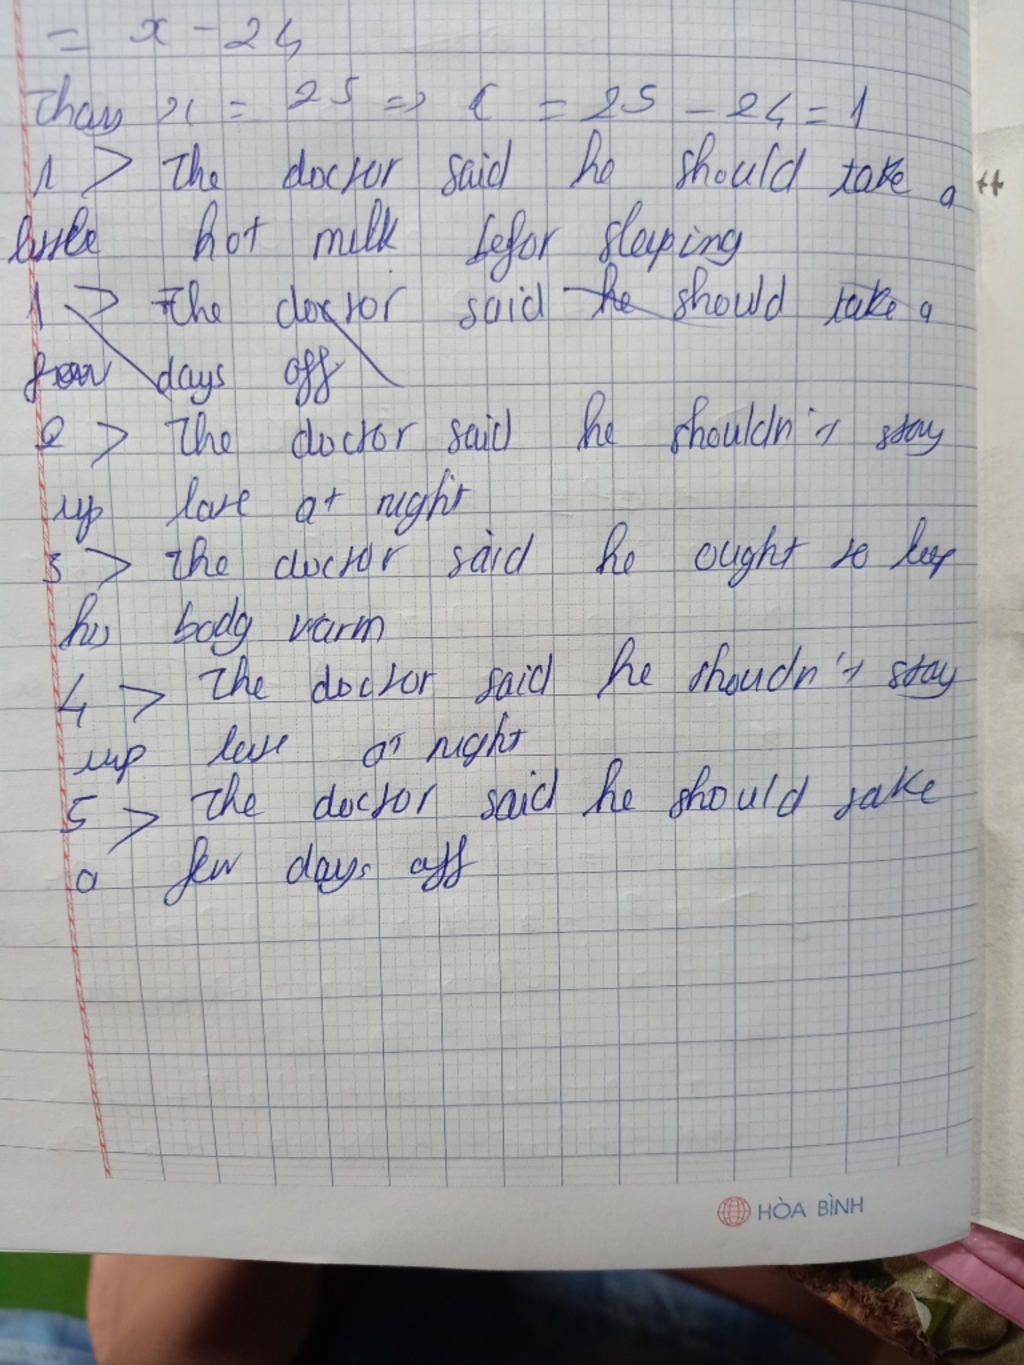 = x - 24
Thay x = 25 => C = 25 - 24 = 1
1 > The doctor said he should take a
little hot milk befor sleeping
1 > The doctor said he should take a
few days off
2 > The doctor said he shouldn't stay
up late at night
3 > The doctor said he ought to keep
his body varm
4 > The doctor said he shoudn't stay
up late at night
5 > The doctor said he should take
a few days off
HÒA BÌNH